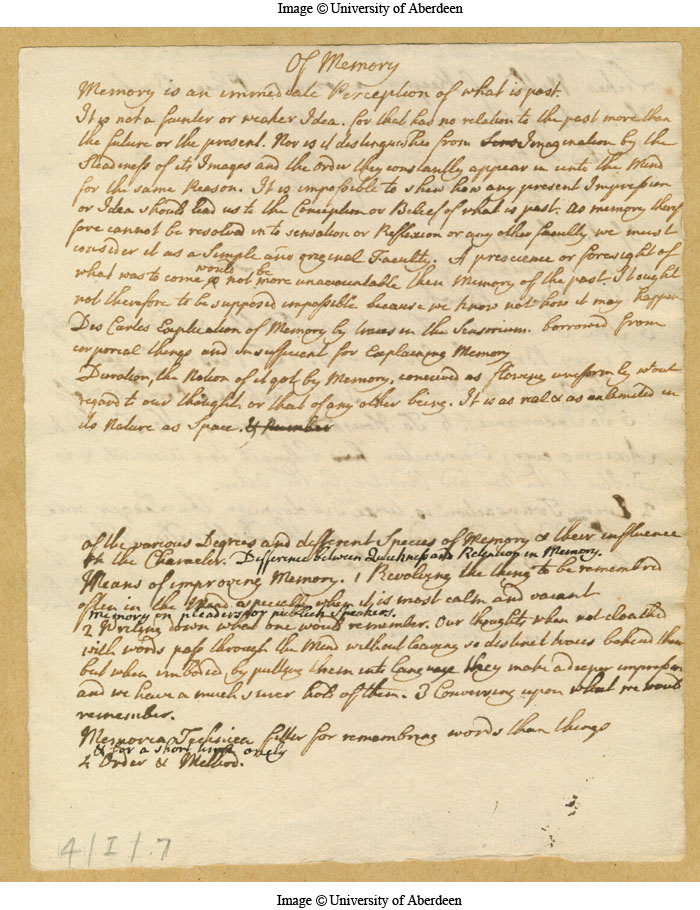 Image © University of Aberdeen
Of Memory
Memory is an immediate Perception of what is past.
It is not a fainter or weaker Idea. for that had no relation to the past more than
the future or the present. Nor is it distinguished from Imagination by the
Steadiness of its Images and the Order they constantly appear in unto the Mind
for the same Reason. It is impossible to shew how any present Impression
or Idea should lead us to the Conception or Belief of what is past. As memory there
fore cannot be resolved into sensation or Reflexion or any other faculty we must
consider it as a Simple and original Faculty. A prescience or foresight of
what was to come would not be more unaccountable then Memory of the past. It ought
not therefore to be supposed impossible because we know not how it may happen
Des Cartes Explication of Memory by traces in the Sensorium. borrowed from
corporeal things and insufficient for Explaining Memory
Duration, the Notion of it got by Memory, conceived as flowing uniformly wtout
regard to our thought or that of any other being. It is as real & as unlimited in
its Nature as Space. & Number
of the various Degrees and different Species of Memory & their influence
on the Character. Difference between Quickness and Retention in Memory.
Means of improving Memory. 1 Revolving the thing to be remembred
often in the Mind especially when it is most calm and vacant
memory in pleaders or publick Speakers.
2 Writing down what one would remember. Our thoughts when not cloathd
with words pass through the Mind without leaving so distinct traces behind them
but when imbodied by putting them into language they make a deeper impression
and we have a much surer hold of them. 3 Conversing upon what we would
remember.
Memoria Technica fitter for remembring words than things
& for a short time only
4 Order & Method.
4/I/.7
Image © University of Aberdeen